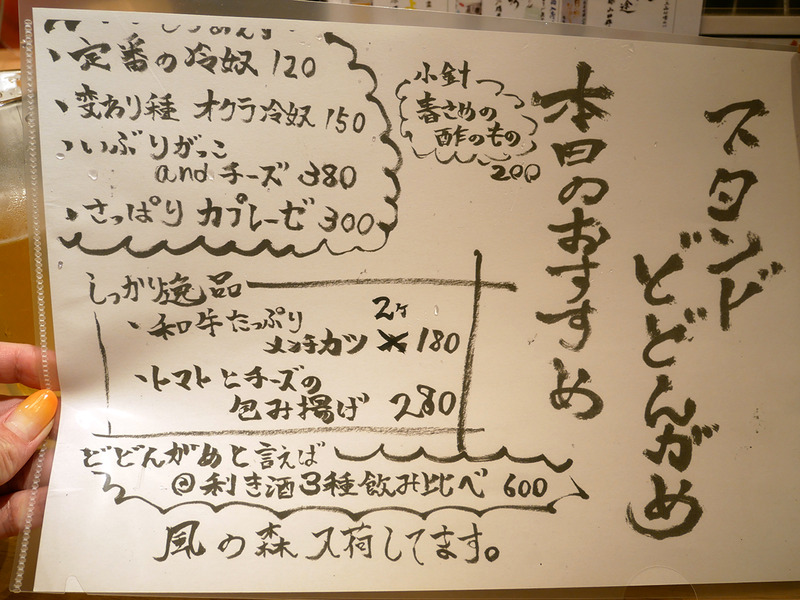 スタンド
どどんがめ
本日のおすすめ
小針
春さめの
酢のもの
200
、定番の冷奴 120
、変わり種 オクラ冷奴 150
、いぶりがっこ
and チーズ 380
、さっぱり カプレーゼ 300
しっかり逸品
・和牛たっぷり
2ケ
メンチカツ 180
・トマトとチーズの
包み揚げ 280
どどんがめと言えば
@利き酒3種飲み比べ 600
風の森 入荷してます。